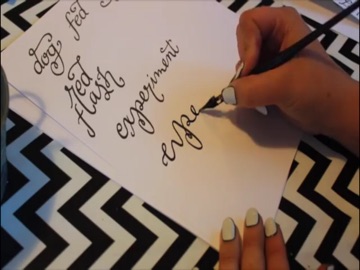 dog fed
red
flash
experiment
type